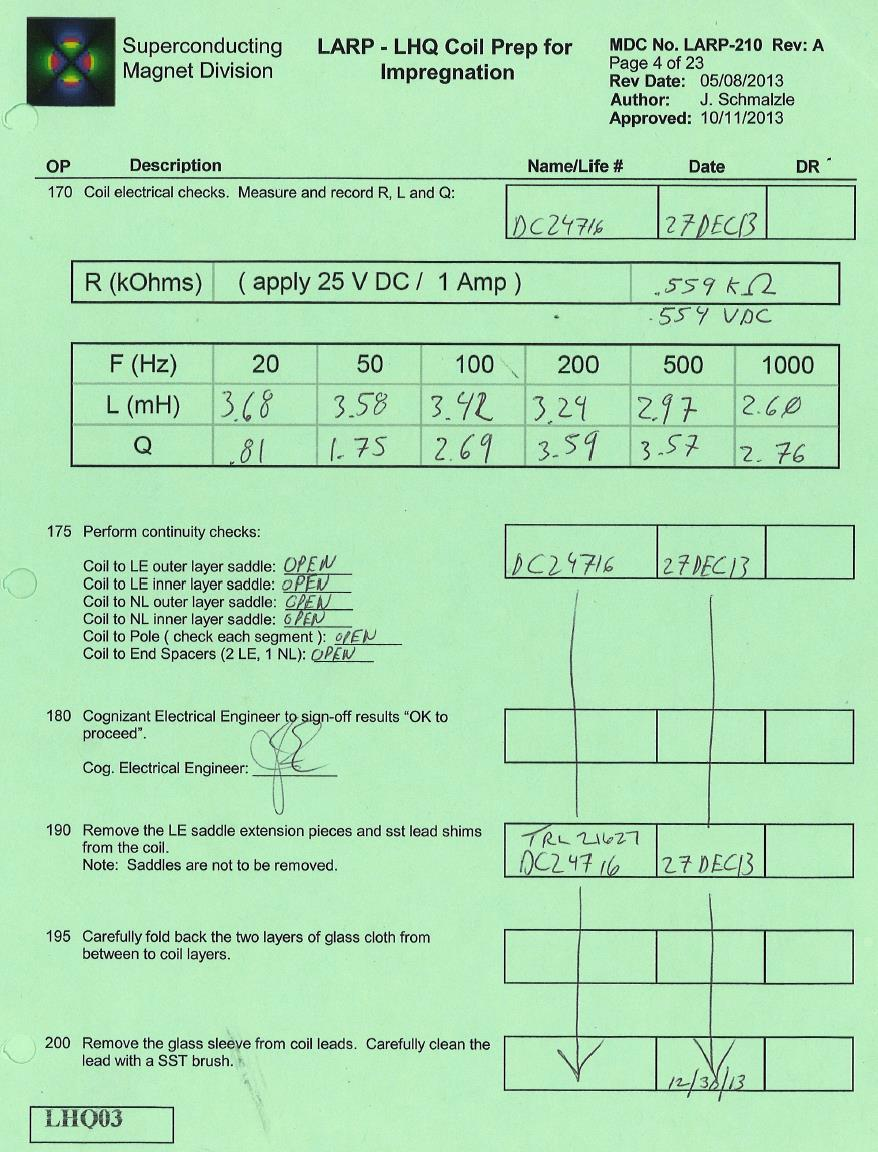 Superconducting
Magnet Division
LARP - LHQ Coil Prep for
Impregnation
MDC No. LARP-210 Rev: A
Page 4 of 23
Rev Date: 05/08/2013
Author: J. Schmalzle
Approved: 10/11/2013
OP Description Name/Life # Date DR
170 Coil electrical checks. Measure and record R, L and Q:
DC24716 27DEC13
R (kOhms) ( apply 25 V DC / 1 Amp ) .559 KΩ
.554 VDC
F (Hz) 20 50 100 200 500 1000
L (mH) 3.68 3.58 3.42 3.24 2.97 2.60
Q .81 1.75 2.69 3.59 3.57 2.76
175 Perform continuity checks:
DC24716 27DEC13
Coil to LE outer layer saddle: OPEN
Coil to LE inner layer saddle: OPEN
Coil to NL outer layer saddle: OPEN
Coil to NL inner layer saddle: OPEN
Coil to Pole ( check each segment ): OPEN
Coil to End Spacers (2 LE, 1 NL): OPEN
180 Cognizant Electrical Engineer to sign-off results “OK to
proceed”.
Cog. Electrical Engineer:
190 Remove the LE saddle extension pieces and sst lead shims
from the coil.
Note: Saddles are not to be removed.
TRL 21627
DC24716 27DEC13
195 Carefully fold back the two layers of glass cloth from
between to coil layers.
200 Remove the glass sleeve from coil leads. Carefully clean the
lead with a SST brush.
12/30/13
LHQ03